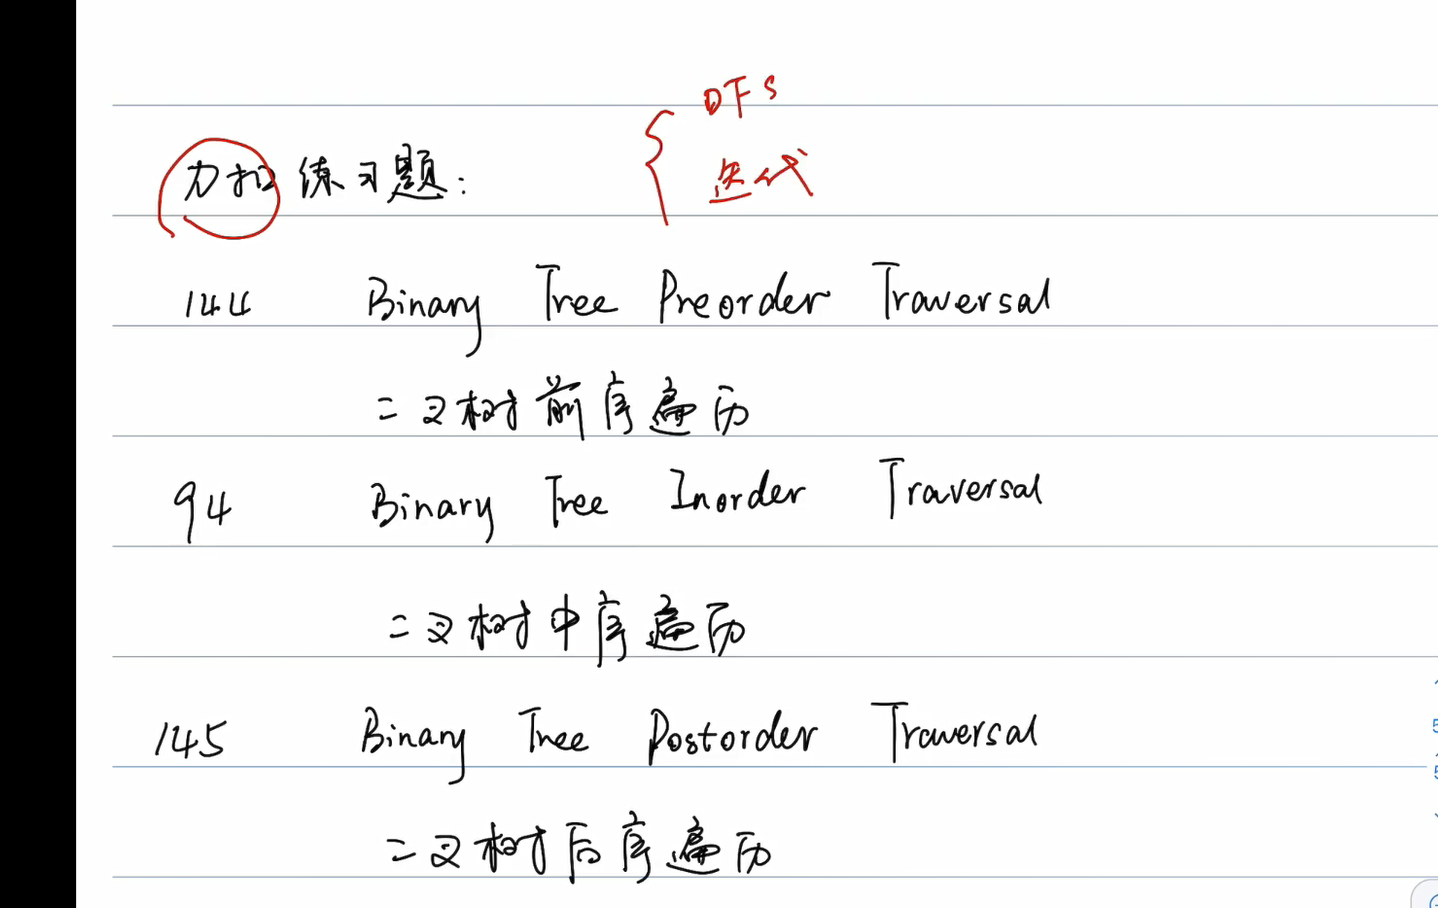 DFS
力扣练习题:
迭代
144 Binary Tree Preorder Traversal
二叉树前序遍历
94 Binary Tree Inorder Traversal
二叉树中序遍历
145 Binary Tree Postorder Traversal
二叉树后序遍历